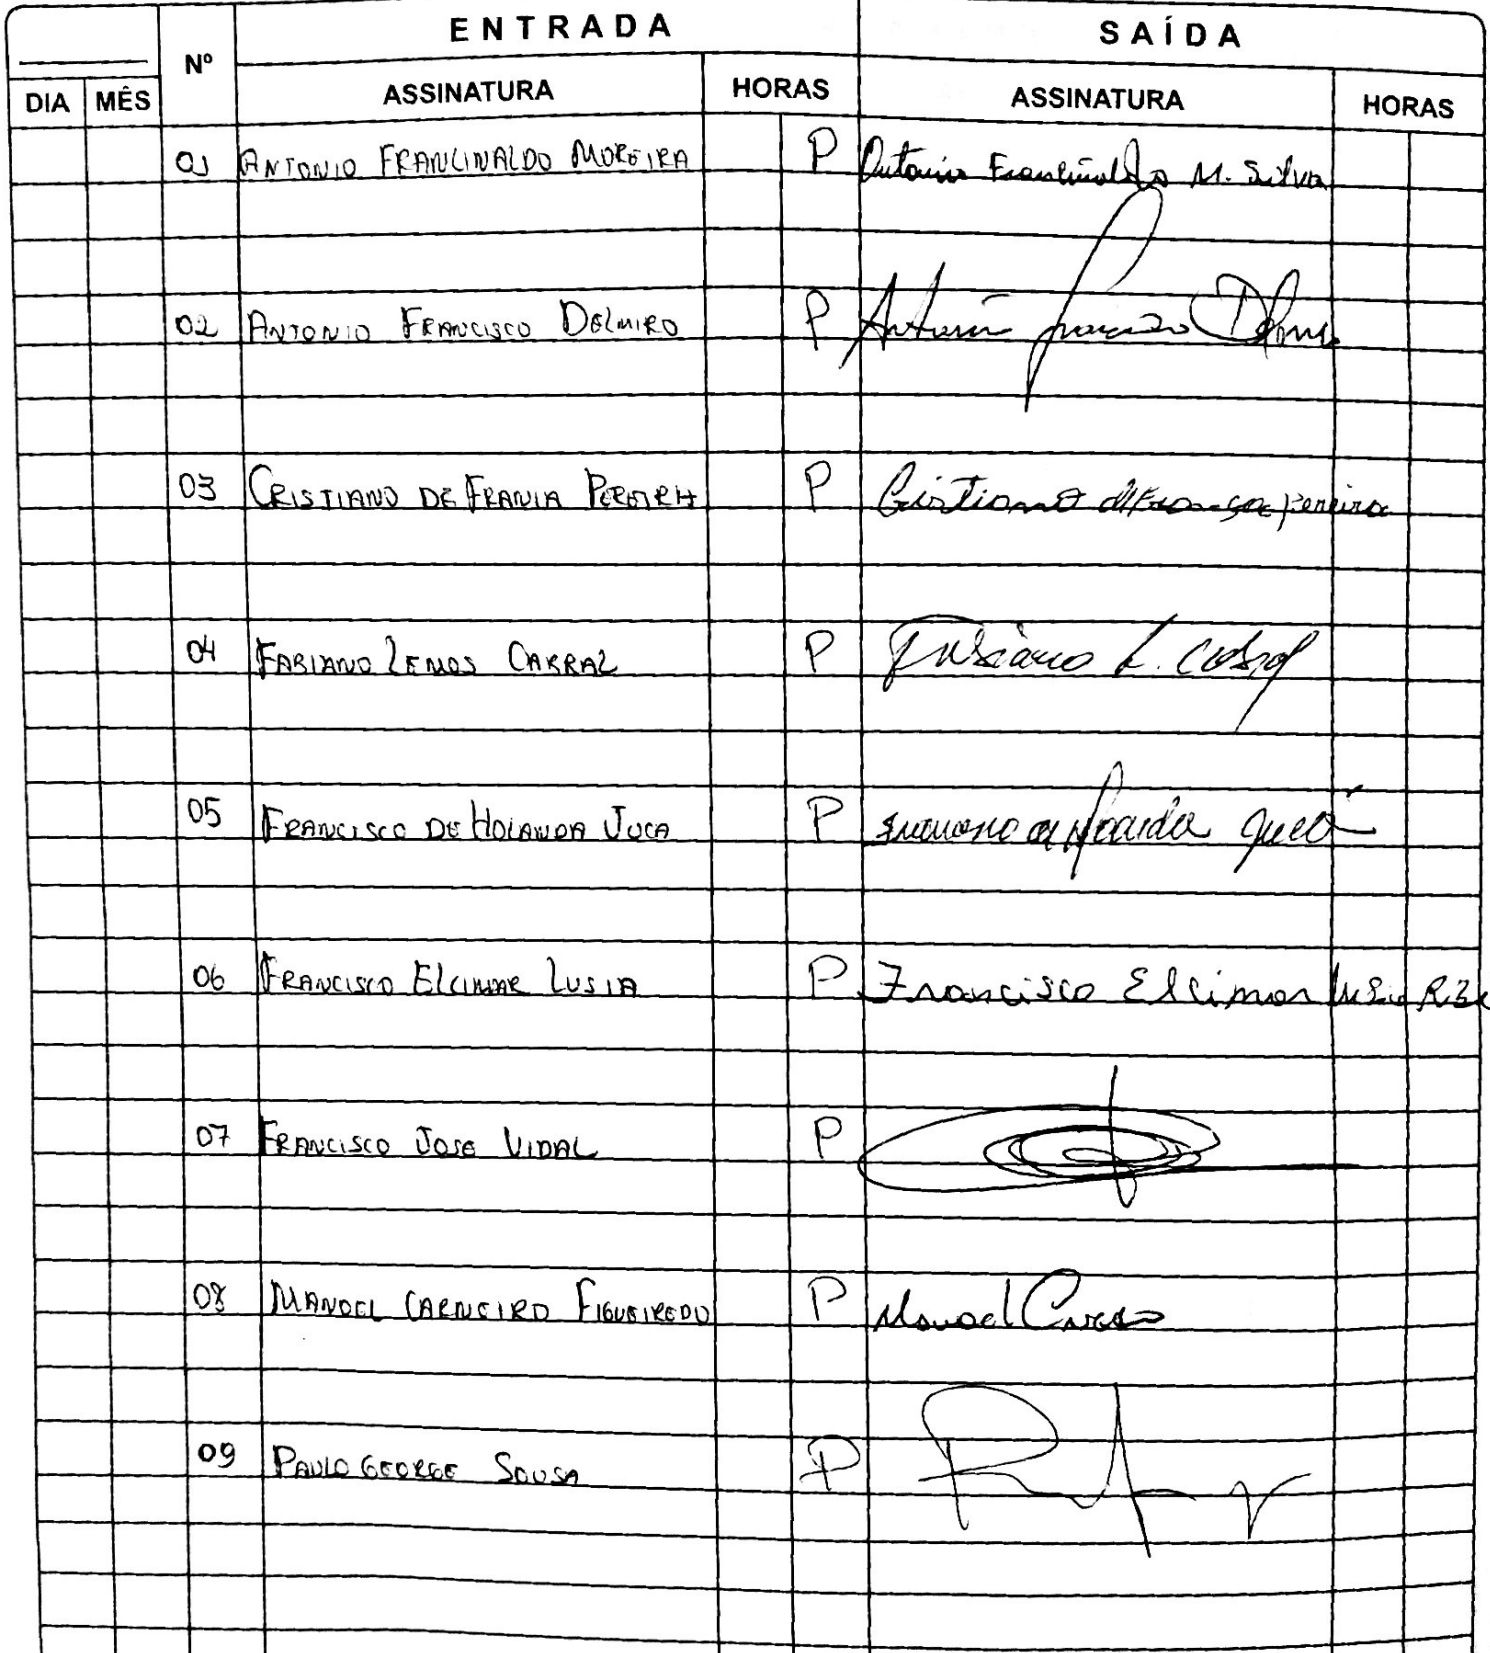 ENTRADA SAÍDA
Nº
DIA MÊS ASSINATURA HORAS ASSINATURA HORAS
01 ANTONIO FRANCINALDO MOREIRA P Antonio Francinaldo M. Silva
02 ANTONIO FRANCISCO DELMIRO P Antonio Francisco
03 CRISTIANO DE FRANÇA PEREIRA P Cristiano de França pereira
04 FABIANO LEMOS CABRAL P Fabiano L. Cabral
05 FRANCISCO DE HOLANDA JUCA P Francisco de Holanda Jucá
06 FRANCISCO ELCIMAR LUSIA P Francisco Elcimar
07 FRANCISCO JOSE VIDAL P
08 MANOEL CARNEIRO FIGUEIREDO P Manoel
09 PAULO GEORGE SOUSA P